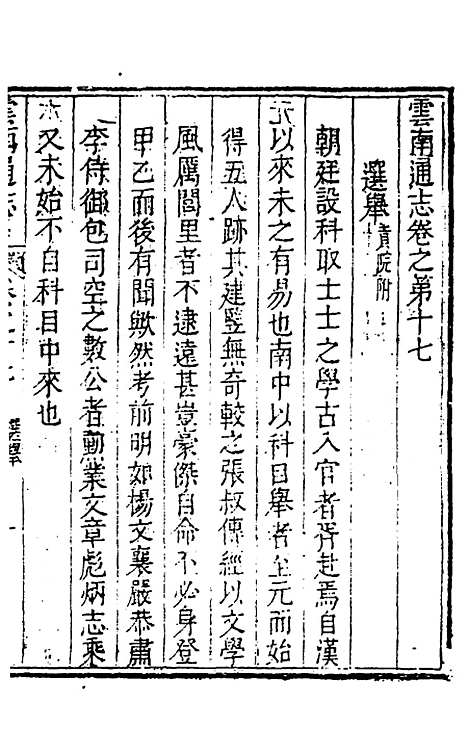 雲南通志卷之第十七
選舉貢院附
朝廷設科取士士之學古入官者胥赴焉自漢
以來未之有易也南中以科目舉者至元而始
得五人跡其建豎無奇較之張叔傳經以文學
風厲閭里者不逮遠甚豈豪傑自命不必身登
甲乙而後有聞歟然考前明如楊文襄嚴恭肅
李侍御包司空之數公者勳業文章彪炳志乘
又未始不自科目中來也
雲南通志 卷之十七 選舉 一